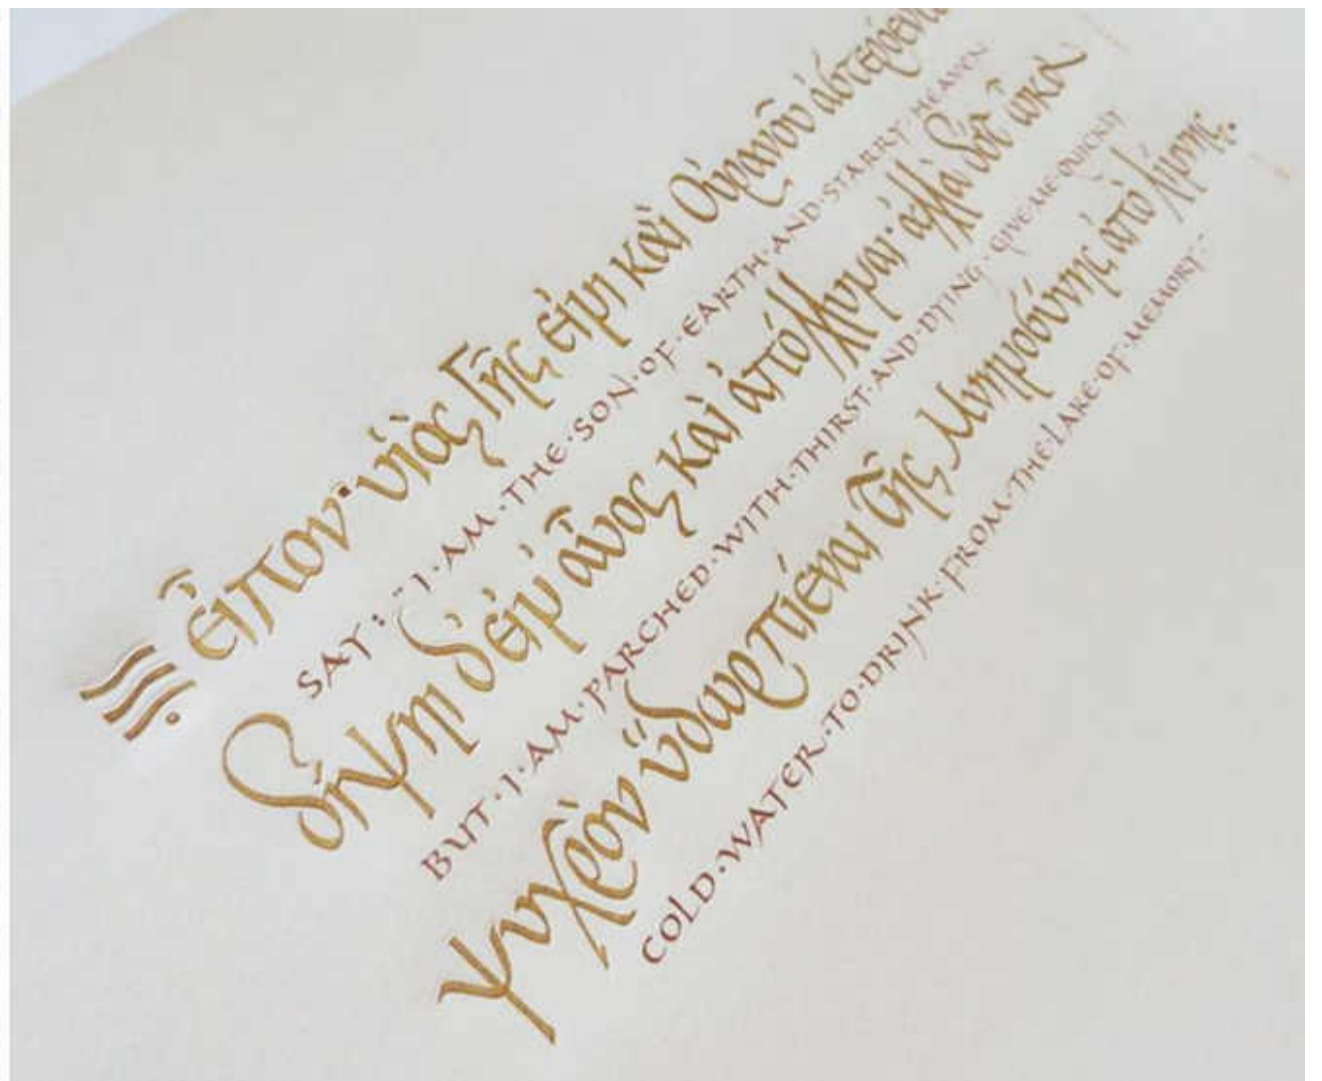 εἶπον· υἱὸς Γῆς εἰμι καὶ Οὐρανοῦ ἀστερόεντ
SAY: "I·AM·THE·SON·OF·EARTH·AND·STARRY·HEAVEN·
δίψῃ δ' εἰμ' αὖος καὶ ἀπόλλυμαι· ἀλλὰ δότ' ὦκα
BUT·I·AM·PARCHED·WITH·THIRST·AND·DYING·GIVE·ME·QUICKLY
ψυχρὸν ὕδωρ πιέναι τῆς Μνημοσύνης ἀπὸ λίμνης
COLD·WATER·TO·DRINK·FROM·THE·LAKE·OF·MEMORY·"